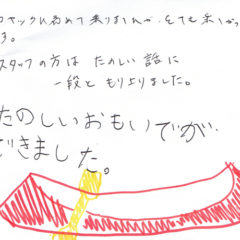 カヤックに初めて乗りましたが、とても楽しかっ
す。
スタッフの方は たのしい話に
一段と もり上りました。
たのしいおもいでが、
できました。